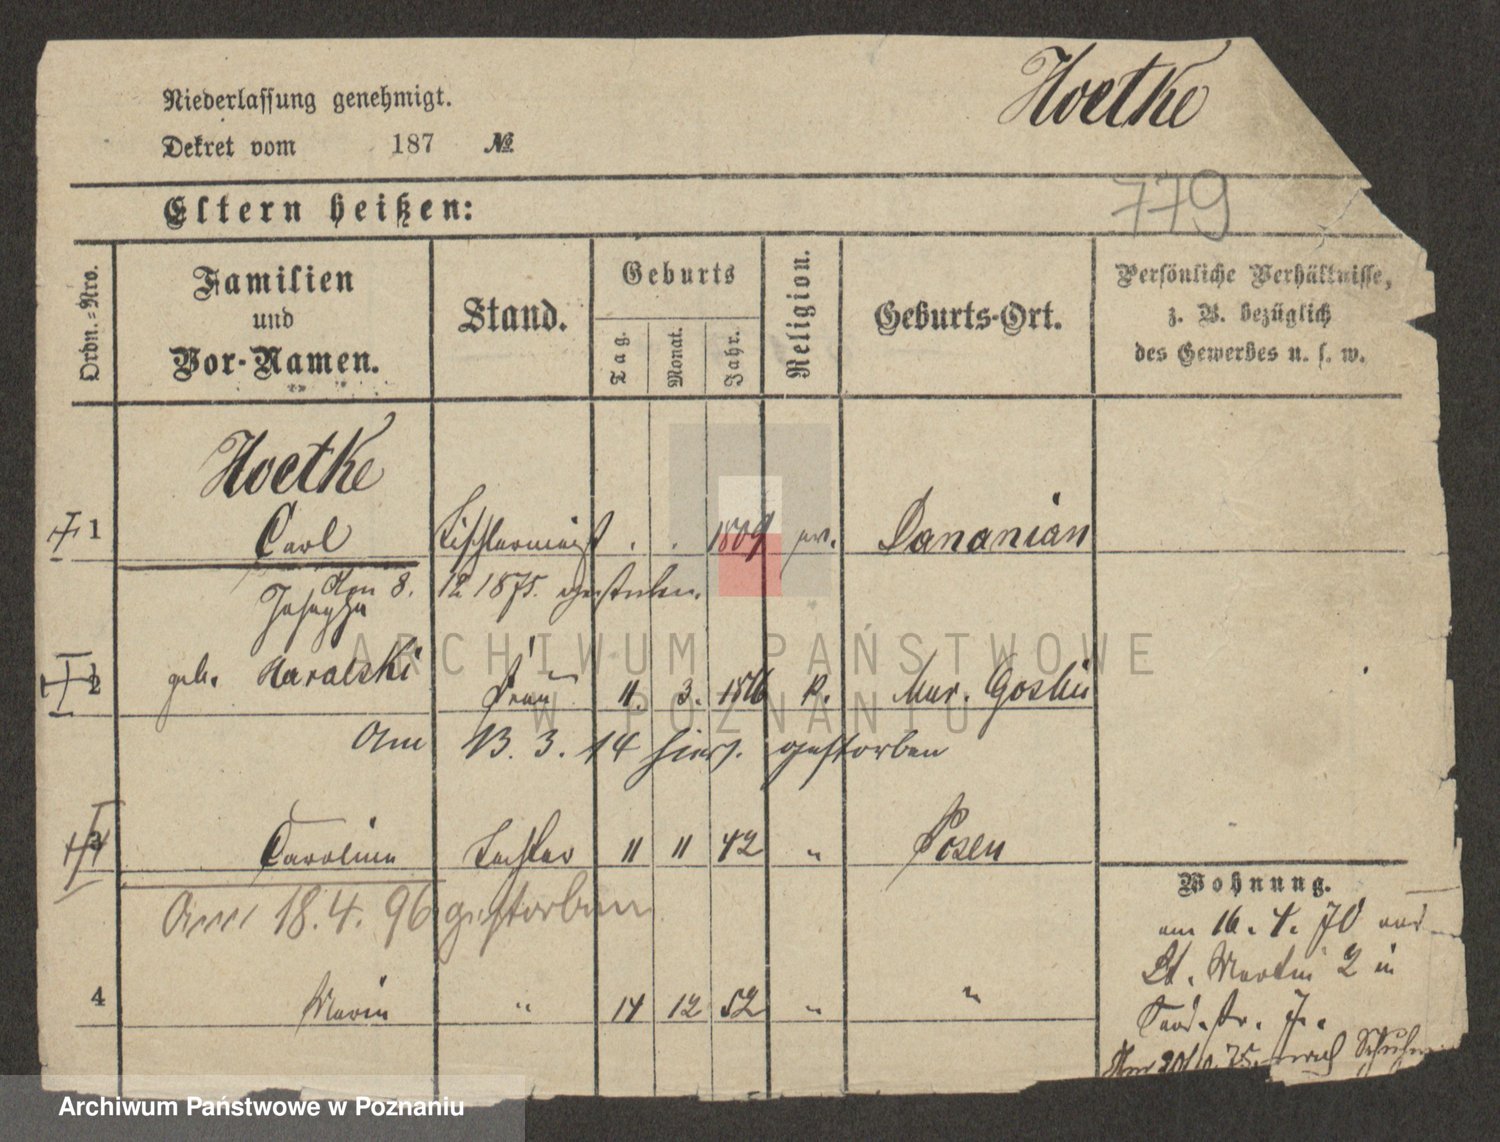 Hoetke
Niederlassung genehmigt.
Dekret vom 187 №
779
Eltern heißen:
Ordn.-Nro.
Familien
und
Vor-Namen.
Stand.
Geburts
Tag.
Monat.
Jahr.
Religion.
Geburts-Ort.
Persönliche Verhältnisse,
z. B. bezüglich
des Gewerbes u. s. w.
Hoetke
1 Carl Tischlermeist . . 1809 ev.
12 1875. gestorben.
Josepha
2 geb. Frau 11. 3. 1816 k. Mur. Goslin
Am 13. 3. 14 hier gestorben
3 Caroline Tochter 11 11 42 " Posen
Am 18.4.96 gestorben
4 Marie " 14 12 52 " "
Wohnung.
am 16. 4. 70 von
St. Martin 2 in
ARCHIWUM PAŃSTWOWE
W POZNANIU
Archiwum Państwowe w Poznaniu